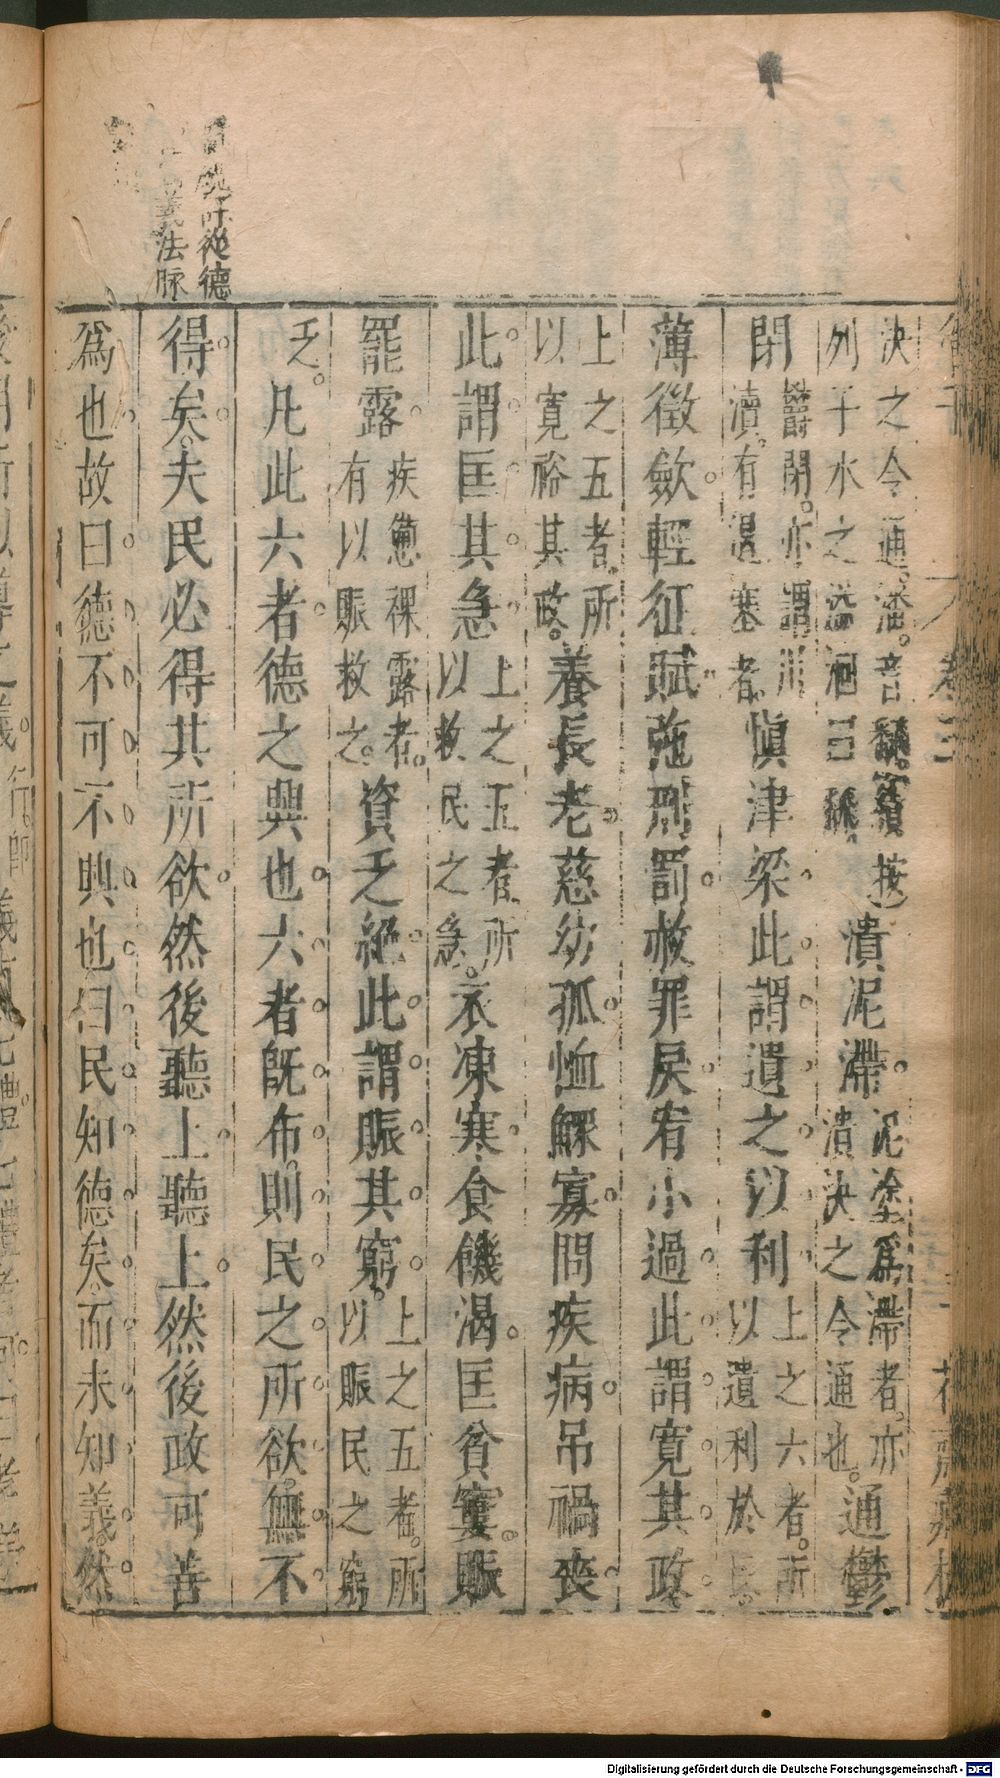 管子 卷三 花齋藏板
決之令通潘。音翻。竇按
列子水之潘洄曰翻
潰泥滯。
泥塗爲滯者。亦
潰決之令通也。
通鬱
閉
鬱閉。亦謂川
瀆。有遏塞者。
愼津梁。此謂遺之以利
上之六者。所
以遺利於民。
薄徵斂。輕征賦。弛刑罰。赦罪戾。宥小過。此謂寬其政。
上之五者。所
以寬裕其政。
養長老。慈幼孤。恤鰥寡。問疾病。吊禍喪。
此謂匡其急。
上之五者。所
以救民之急。
衣凍寒。食饑渴。匡貧窶。賑
罷露。
疾憊裸露者。
有以賑救之。
資乏絕。此謂賑其窮。
上之五者。所
以賑民之窮
乏。凡此六者。德之興也。六者旣布。則民之所欲。無不
得矣。夫民必得其所欲。然後聽上。聽上。然後政可善
爲也。故曰。德不可不興也。曰民知德矣。而未知義。然
從德
義法脉
Digitalisierung gefördert durch die Deutsche Forschungsgemeinschaft - DFG